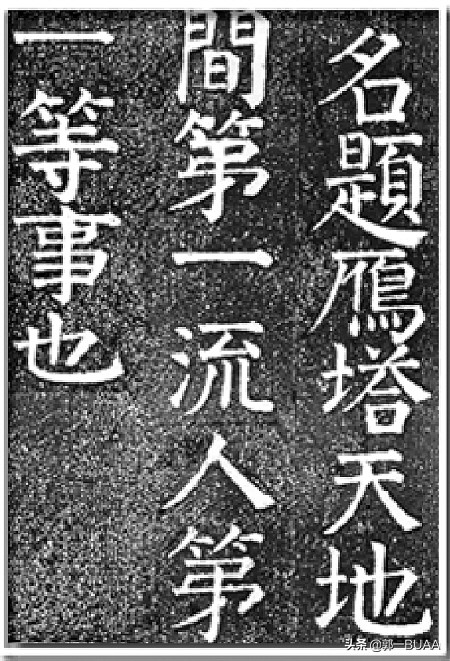 名題鴈塔天地
間第一流人第
一等事也
头条@郭一BUAA